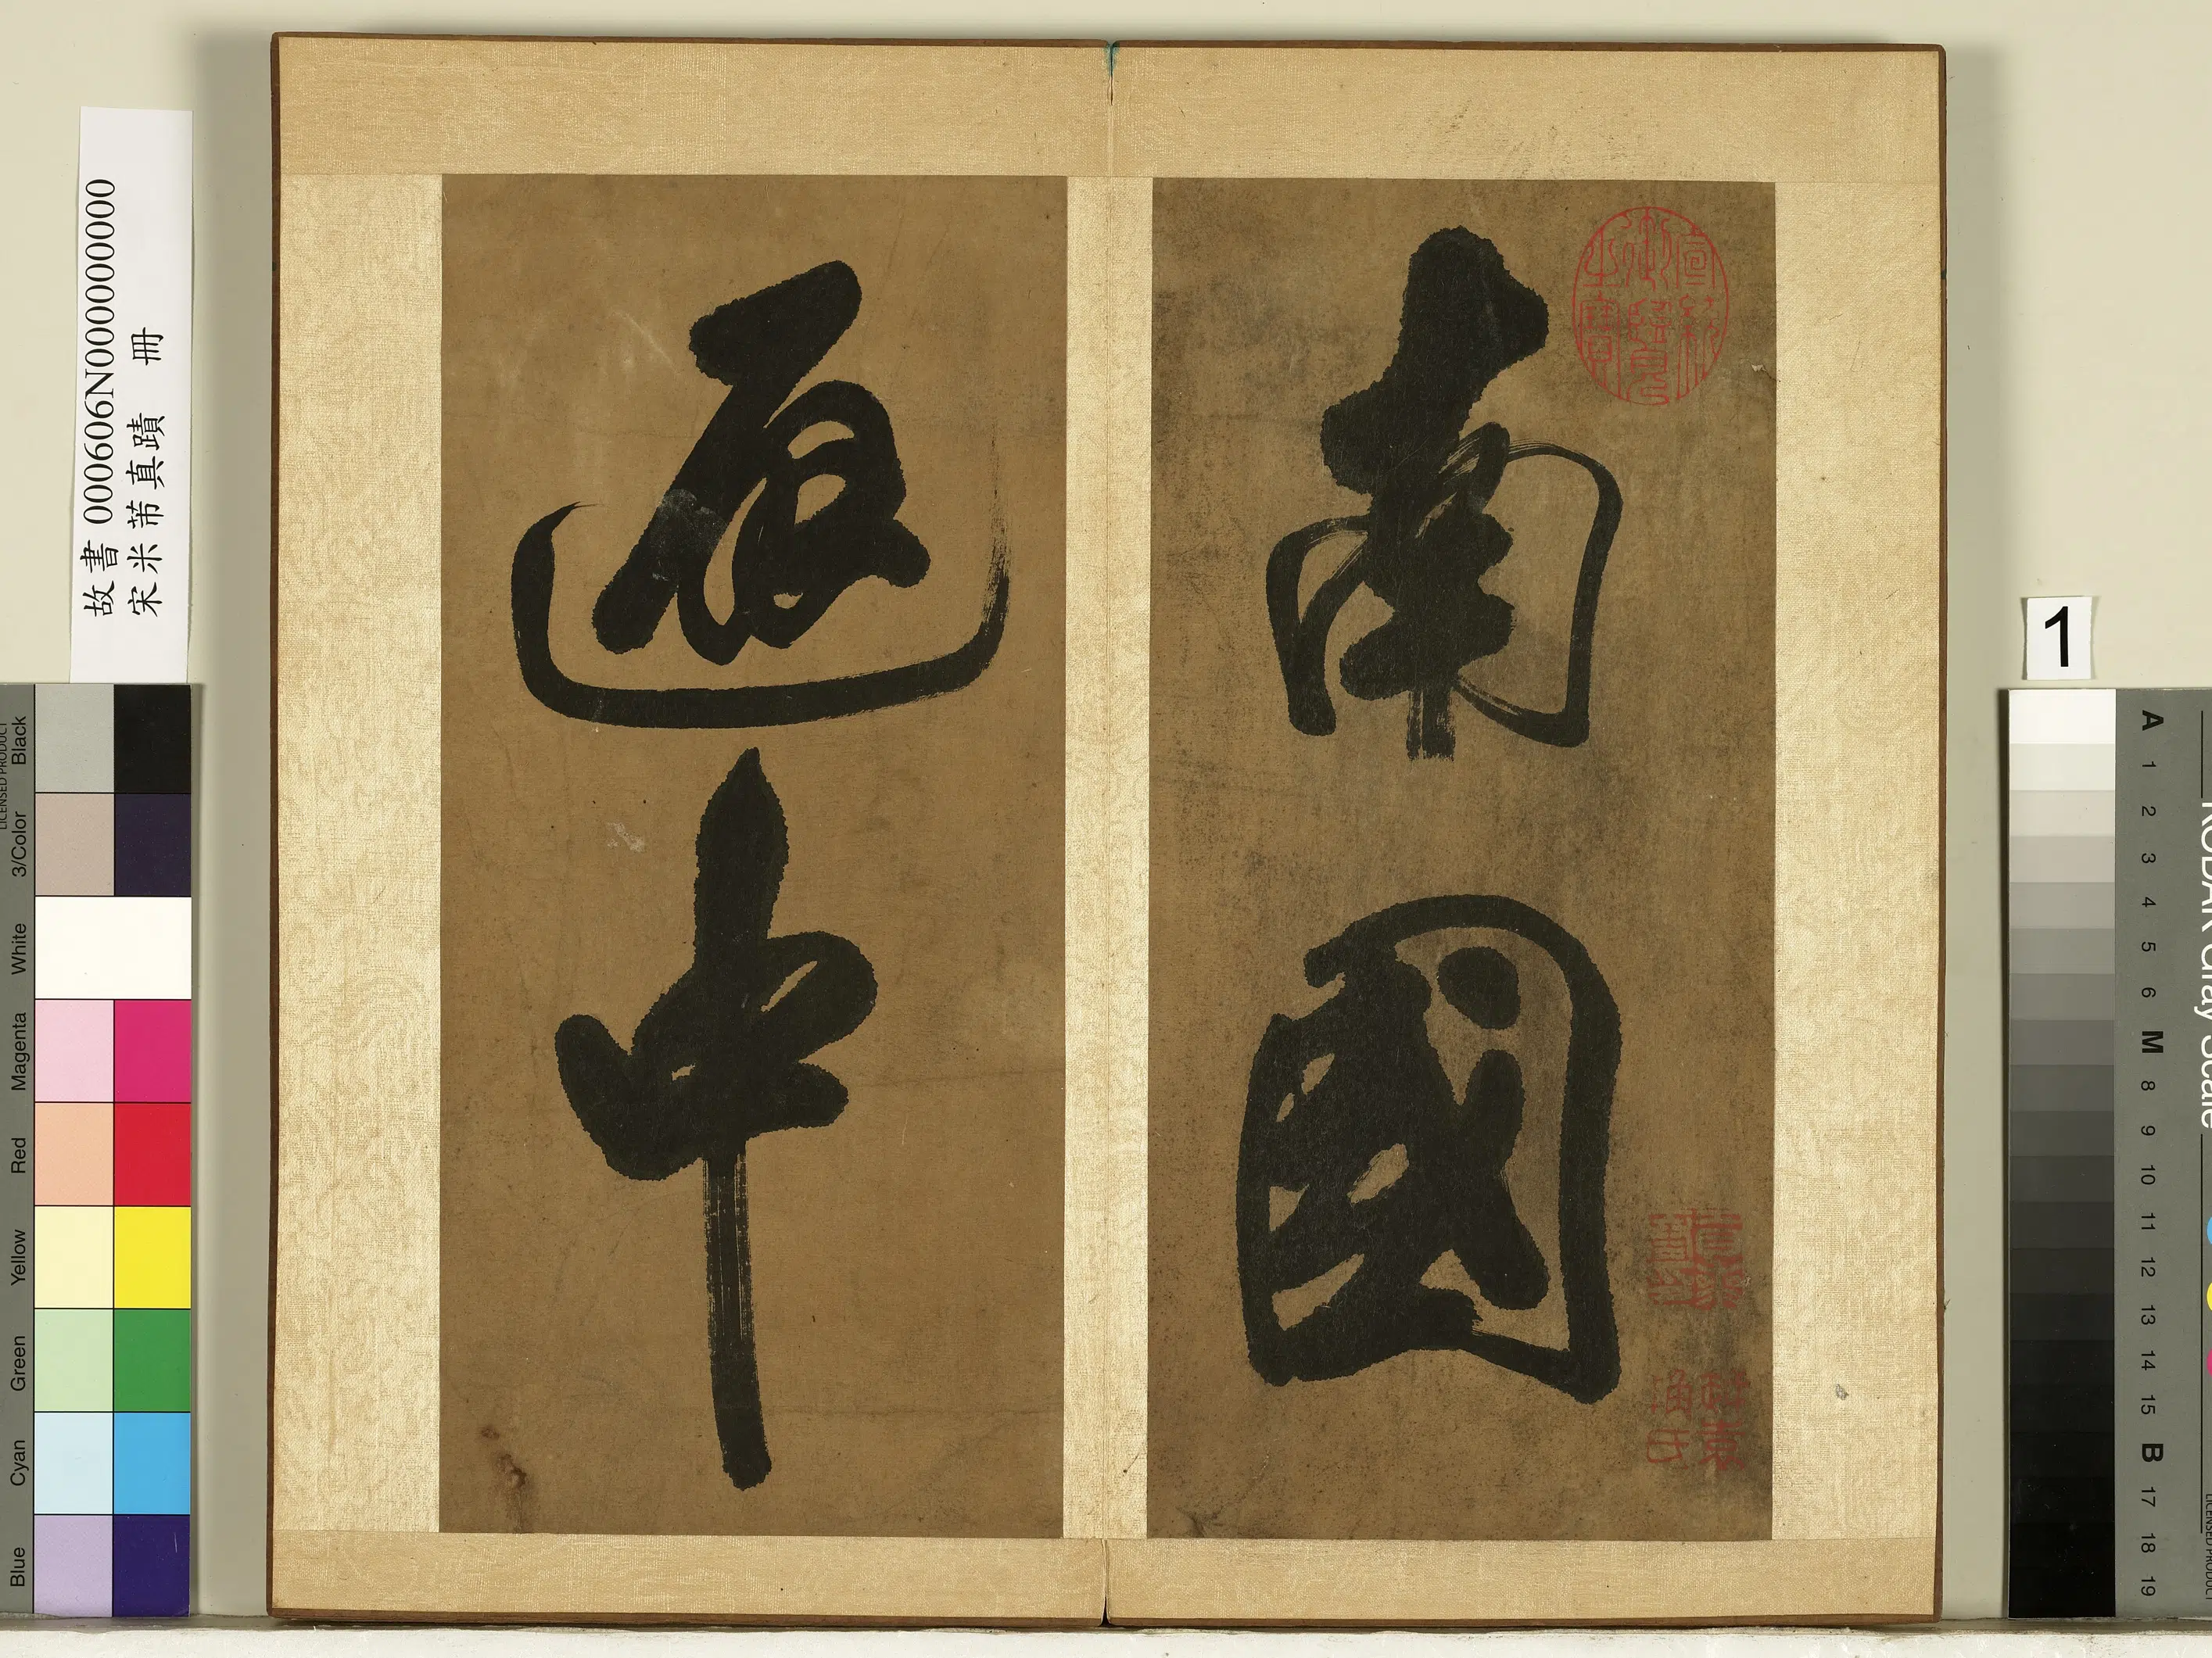 故書 000606N000000000
宋米芾真蹟 冊
南國
中
1
Black
3/Color
White
Magenta
Red
Yellow
Green
Cyan
Blue
LICENSED PRODUCT
KODAK Gray Scale
A 1 2 3 4 5 6 M 8 9 10 11 12 13 14 15 B 17 18 19
LICENSED PRODUCT